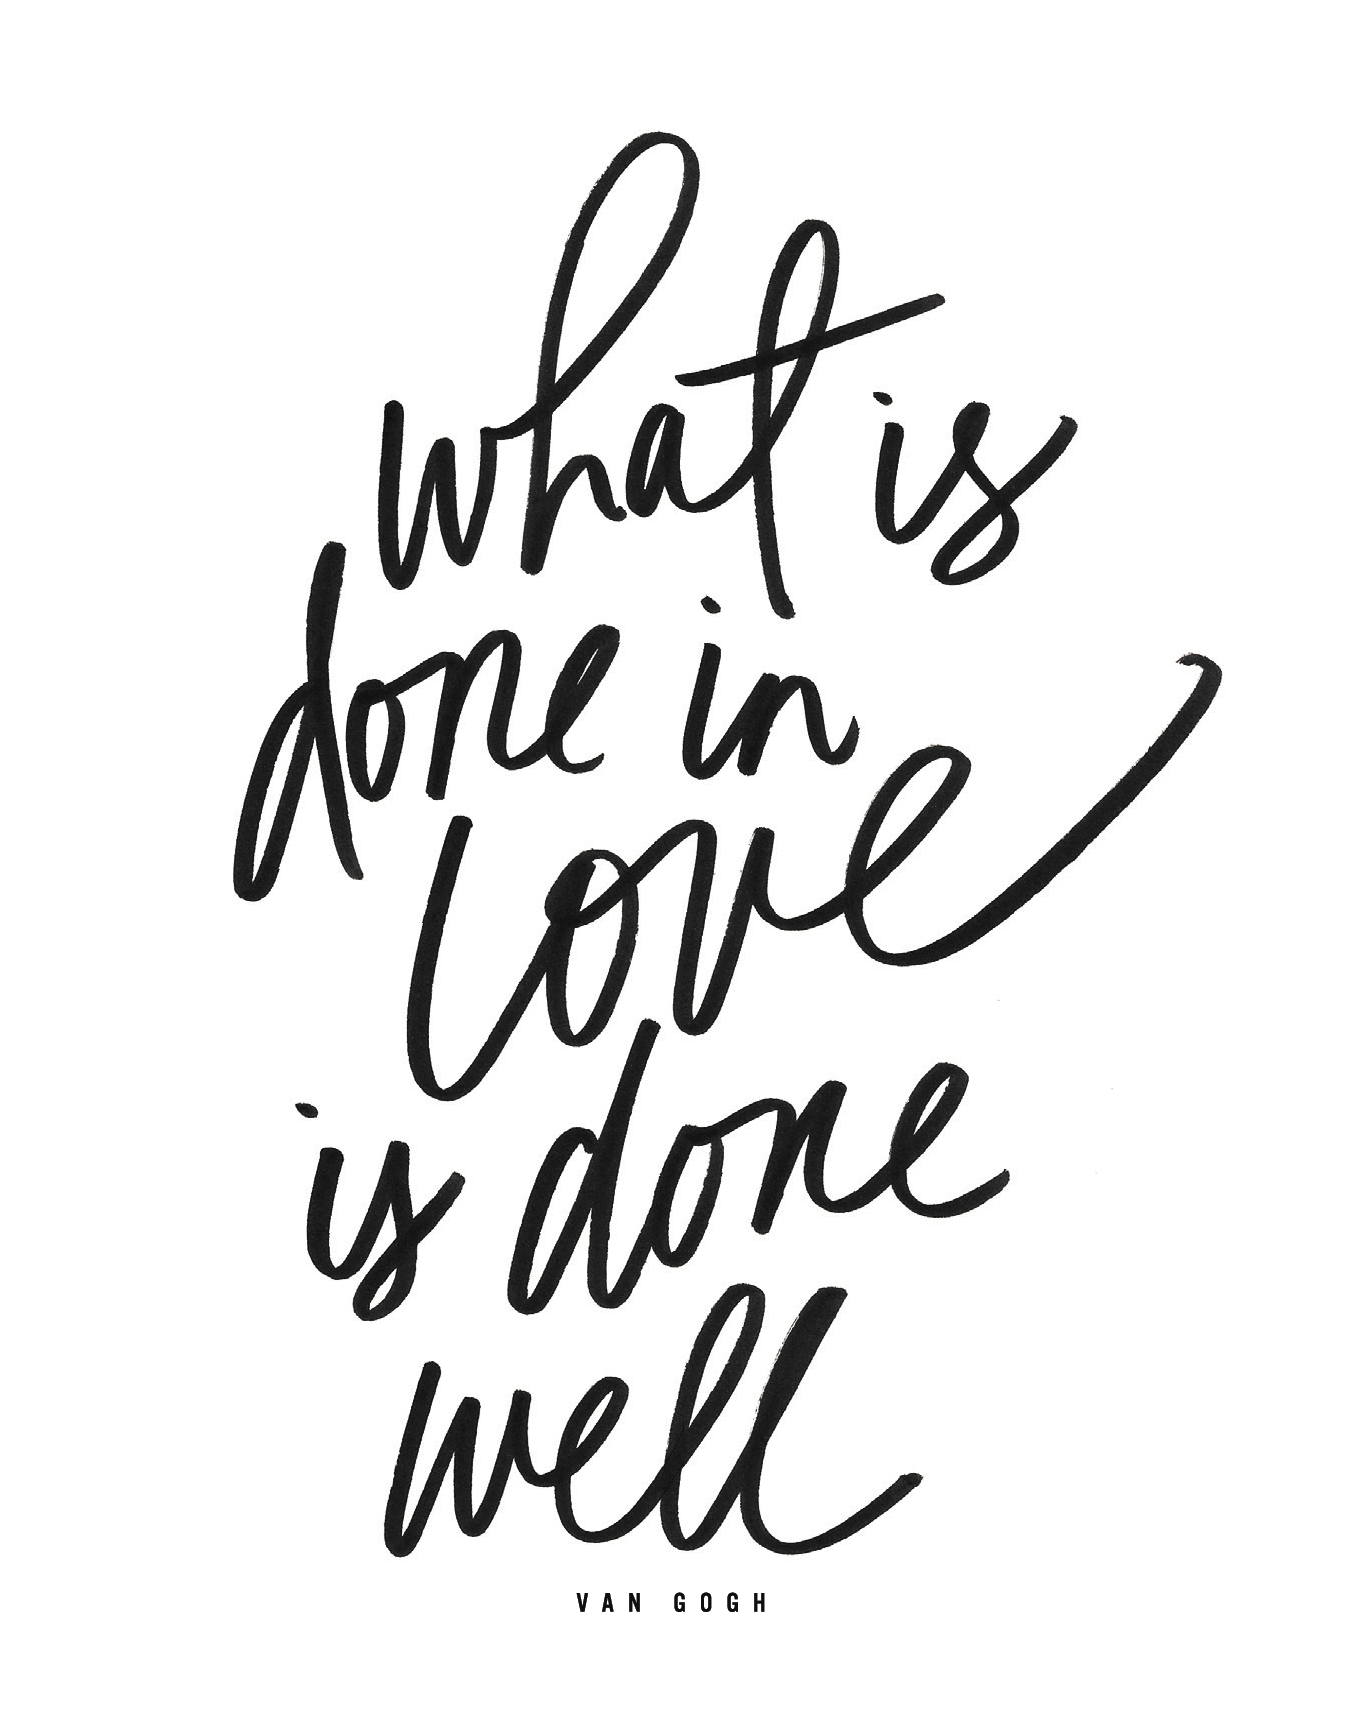 what is
done in
love
is done
well
VAN GOGH